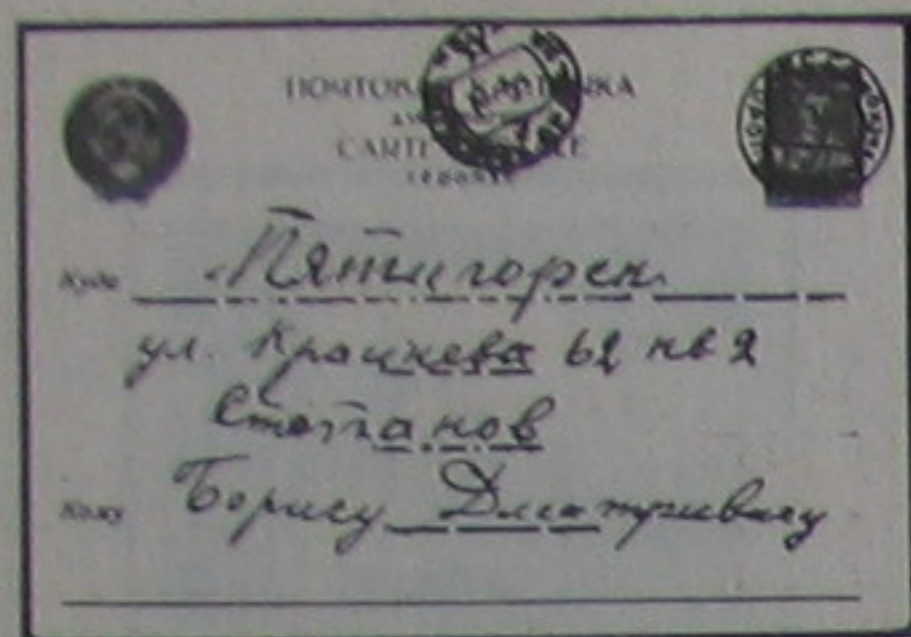 ПОЧТОВАЯ КАРТОЧКА
CARTE POSTALE
Куда Пятигорск
ул. Крайнева 62 кв 2
Степанов
Кому Борису Дмитриевичу